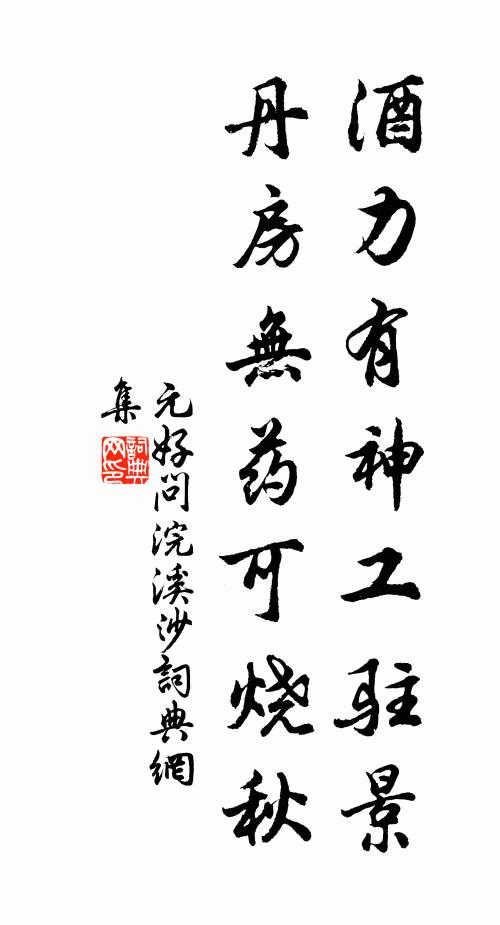 酒力有神工駐景
丹房無药可烧秋
元好问浣溪沙詞典網
集
詞典
网印